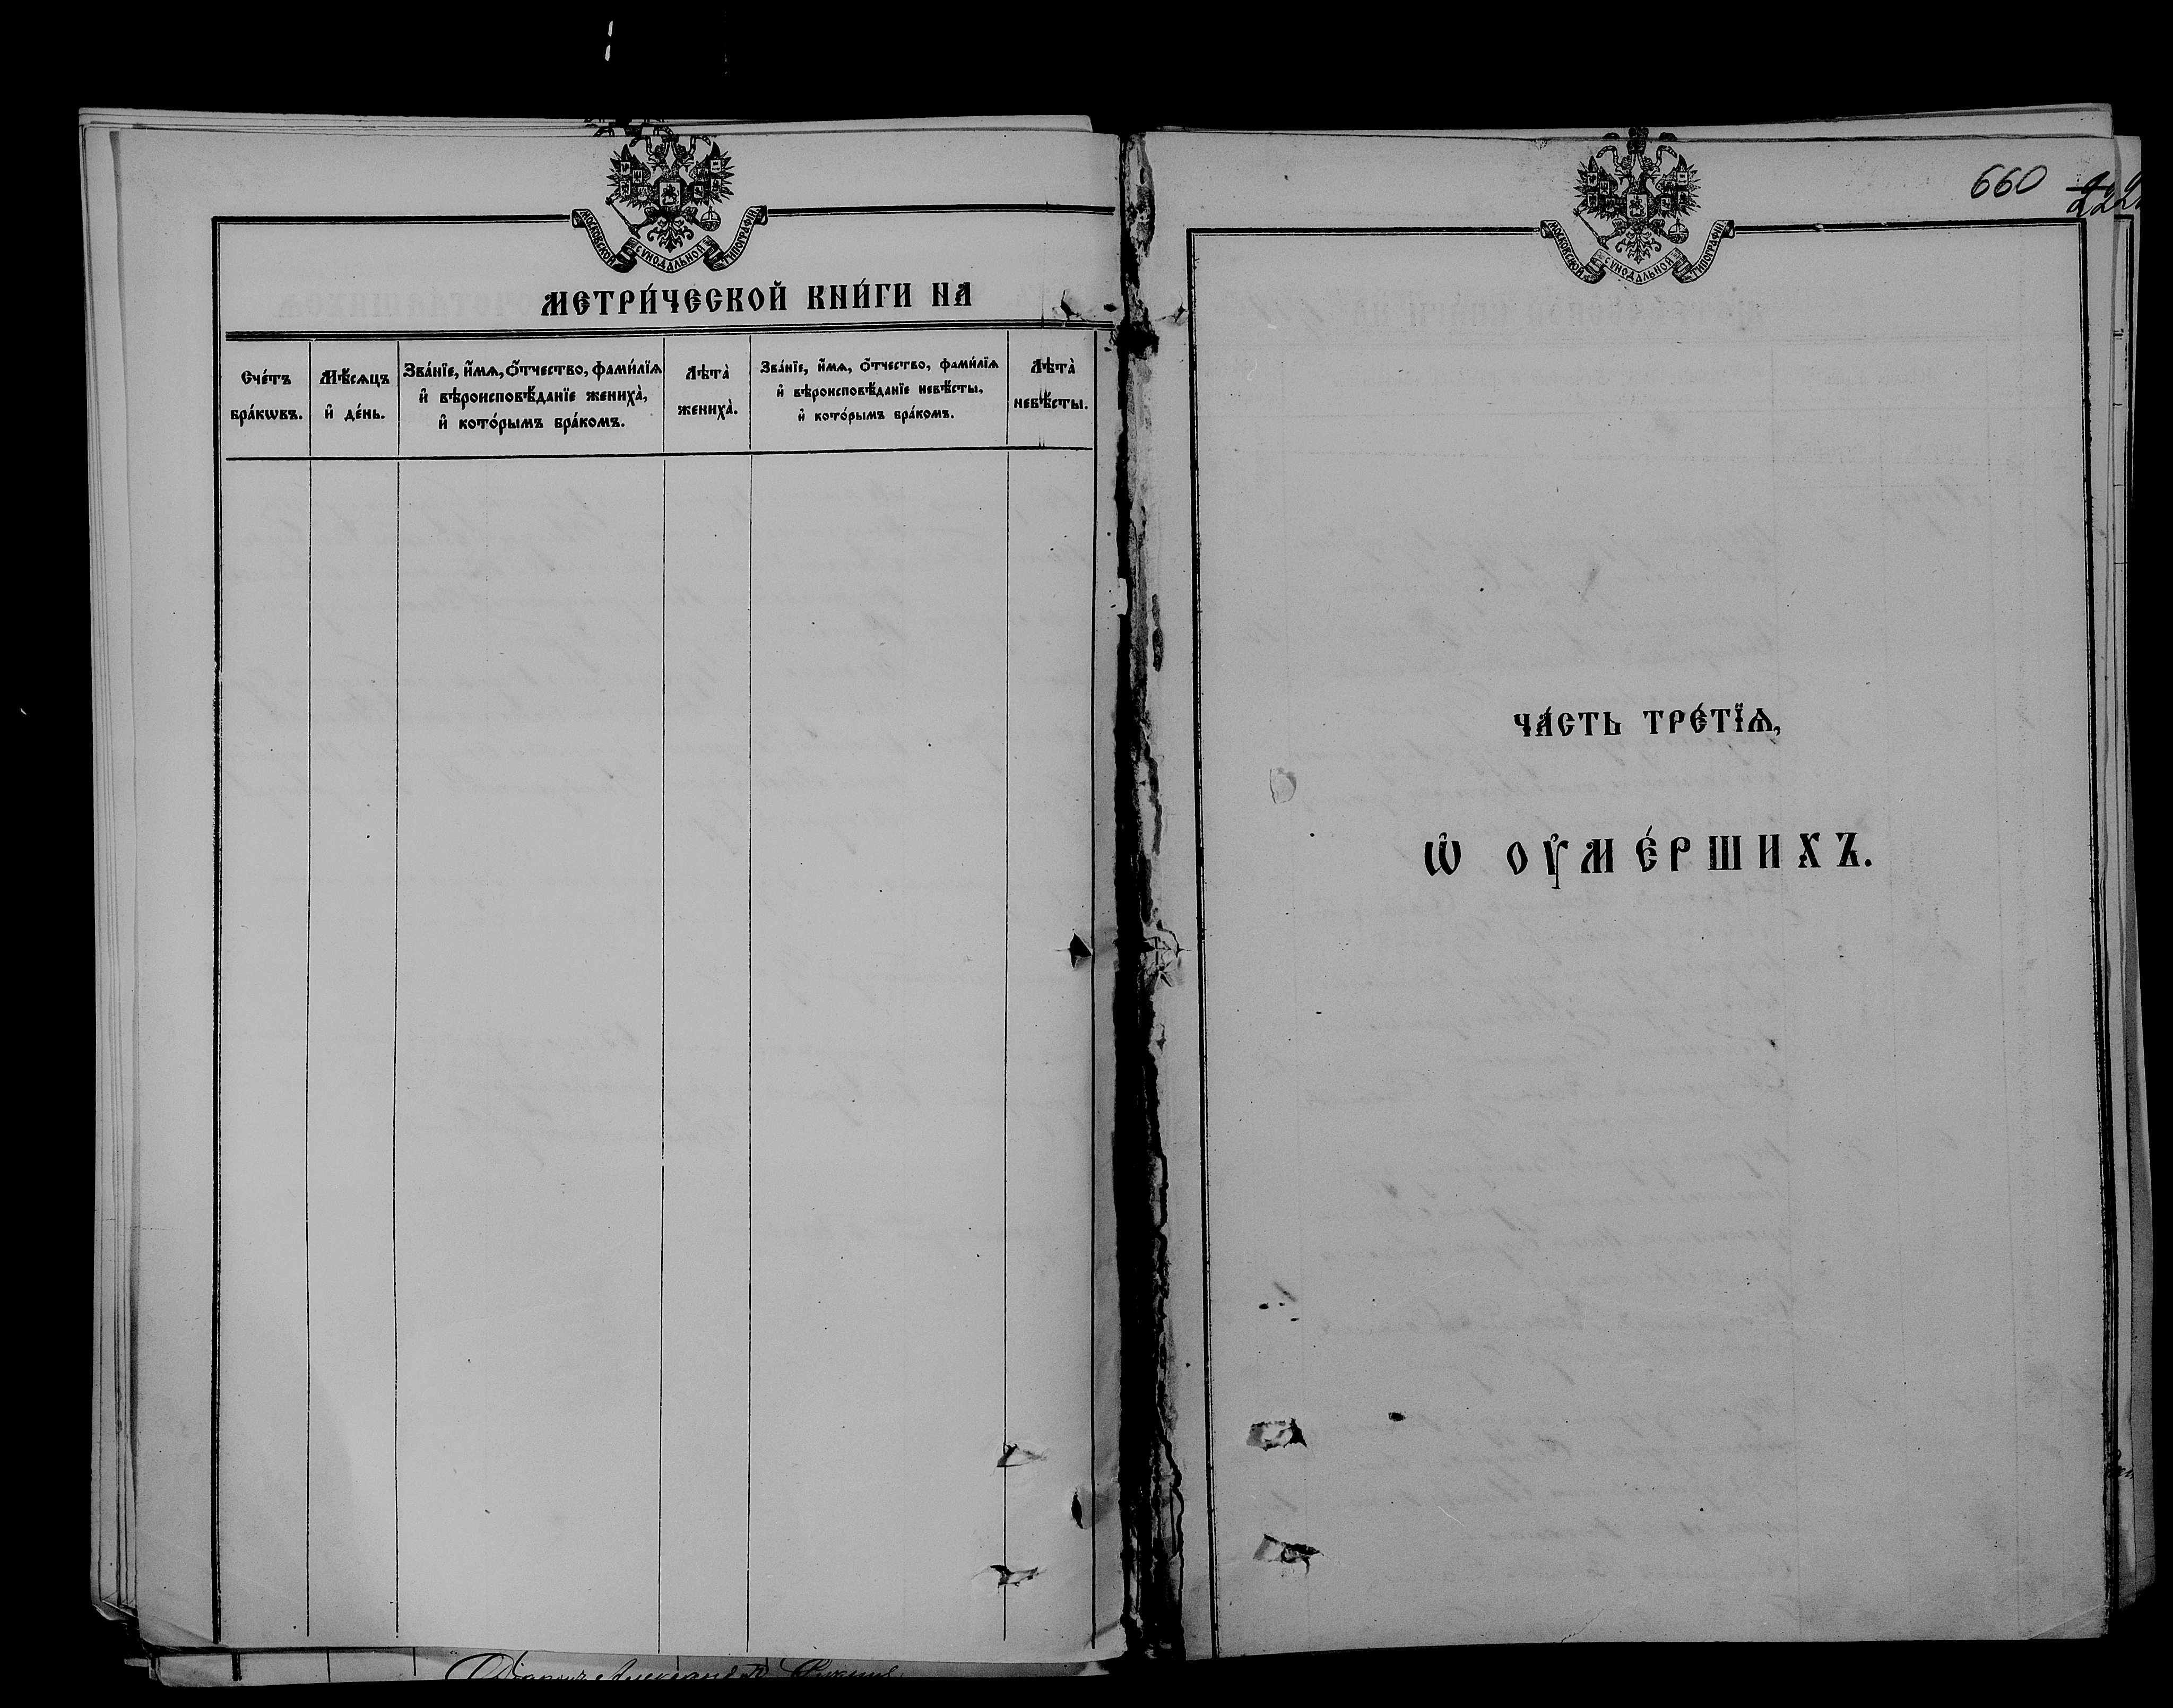 МОСКОВСКОЙ СѴНОДАЛЬНОЙ ТИПОГРАФІИ
МЕТРИ́ЧЕСКОЙ КНИ́ГИ НА
Сче́тъ
бра́кѡвъ.
Мѣ́сяцъ
и҆ де́нь.
Зва́нїе, и҆́мѧ, ѻ҆́тчество, фами́лїѧ
и҆ вѣроисповѣ́данїе жениха̀,
и҆ кото́рымъ бра́комъ.
Лѣта̀
жениха̀.
Зва́нїе, и҆́мѧ, ѻ҆́тчество, фами́лїѧ
и҆ вѣроисповѣ́данїе невѣ́сты,
и҆ кото́рымъ бра́комъ.
Лѣта̀
невѣ́сты.
660
МОСКОВСКОЙ СѴНОДАЛЬНОЙ ТИПОГРАФІИ
ЧА́СТЬ ТРЕ́ТЇѦ,
Ѡ҆ ОУ҆МЕ́РШИХЪ.